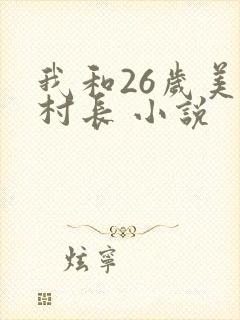 我和26歲美
村長 小說
炫寧